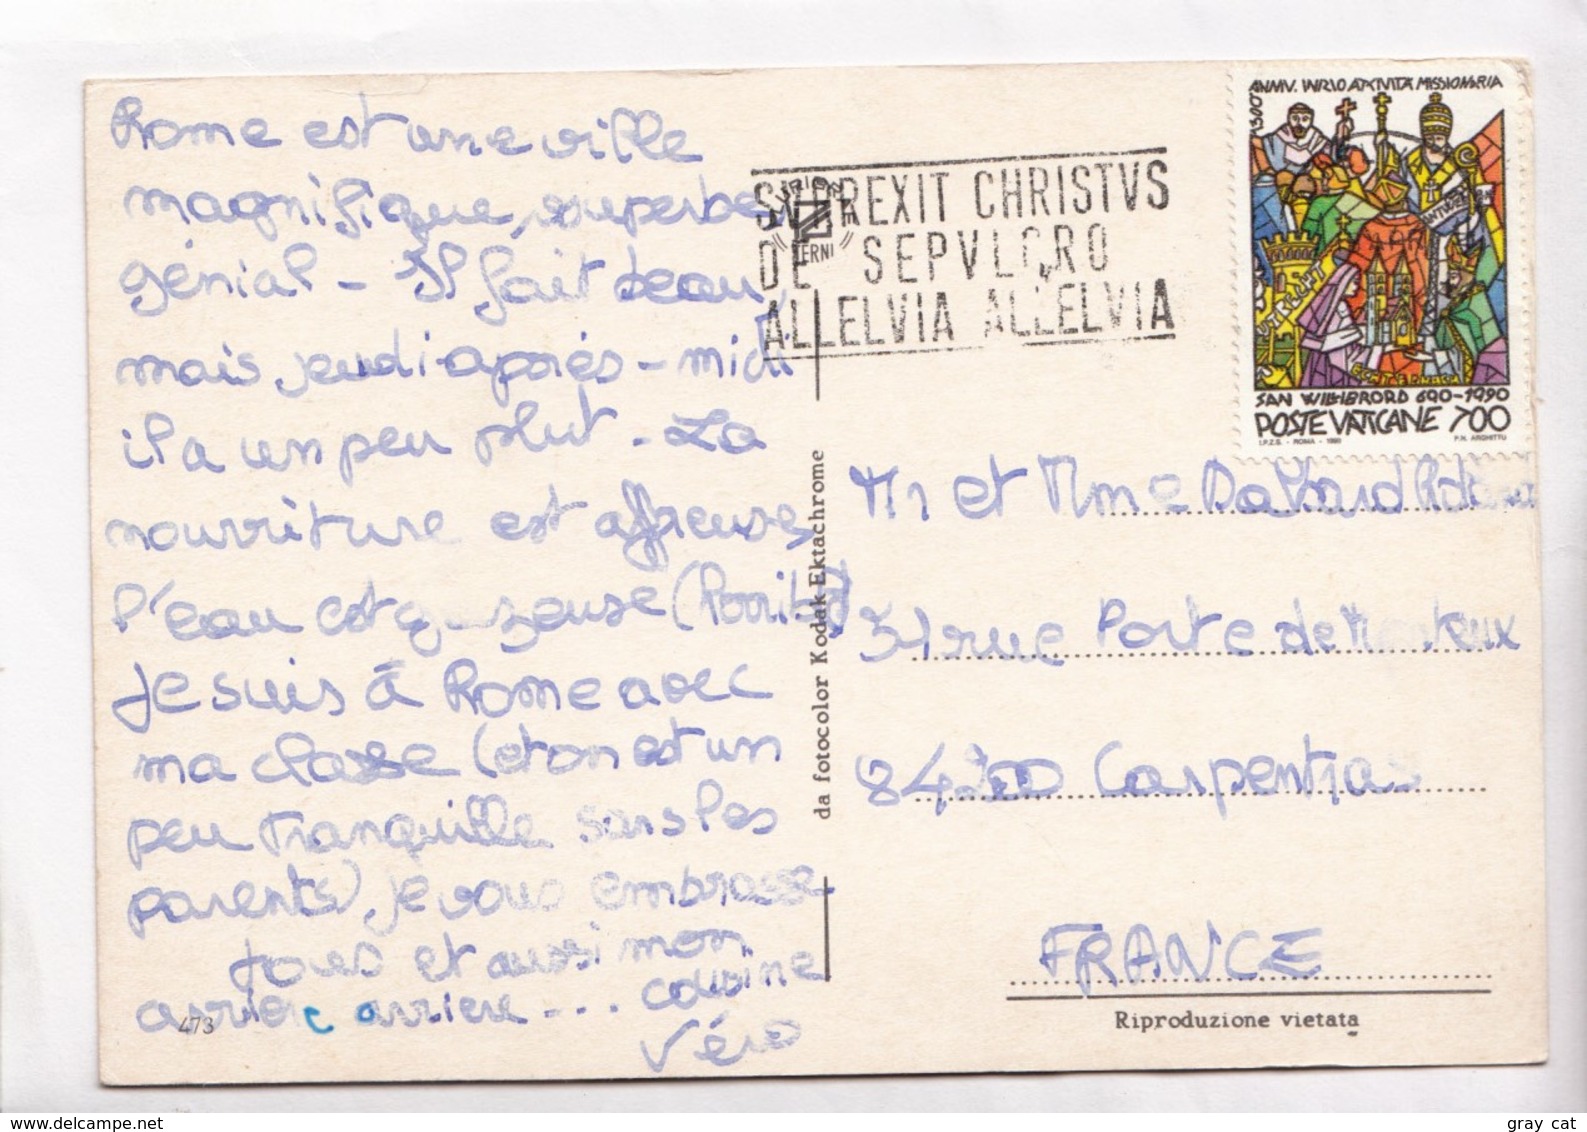 Rome est une ville
magnifique, superbe,
génial - Il fait beau
mais jeudi après-midi
il a un peu plut - La
nourriture est affreuse,
l'eau est gazeuse (
Je suis à Rome avec
ma classe (et on est un
peu tranquille sans les
parents) je vous embrasse
tous et aussi mon
arrière arrière ... cousine
Véro
473
da fotocolor Kodak Ektachrome
EDIZIONI
TERNI
SVRREXIT CHRISTVS
DE SEPVLCRO
ALLELVIA ALLELVIA
1300° ANNIV. INIZIO ATTIVITÀ MISSIONARIA
ANTWERPEN
UTRECHT
ECHTERNACH
SAN WILLIBRORD 690-1990
POSTE VATICANE 700
I.P.Z.S. - ROMA - 1990 P.N. ARGHITTU
Mr et Mme
31 rue Porte de Monteux
84200 Carpentras
FRANCE
Riproduzione vietata
gray cat